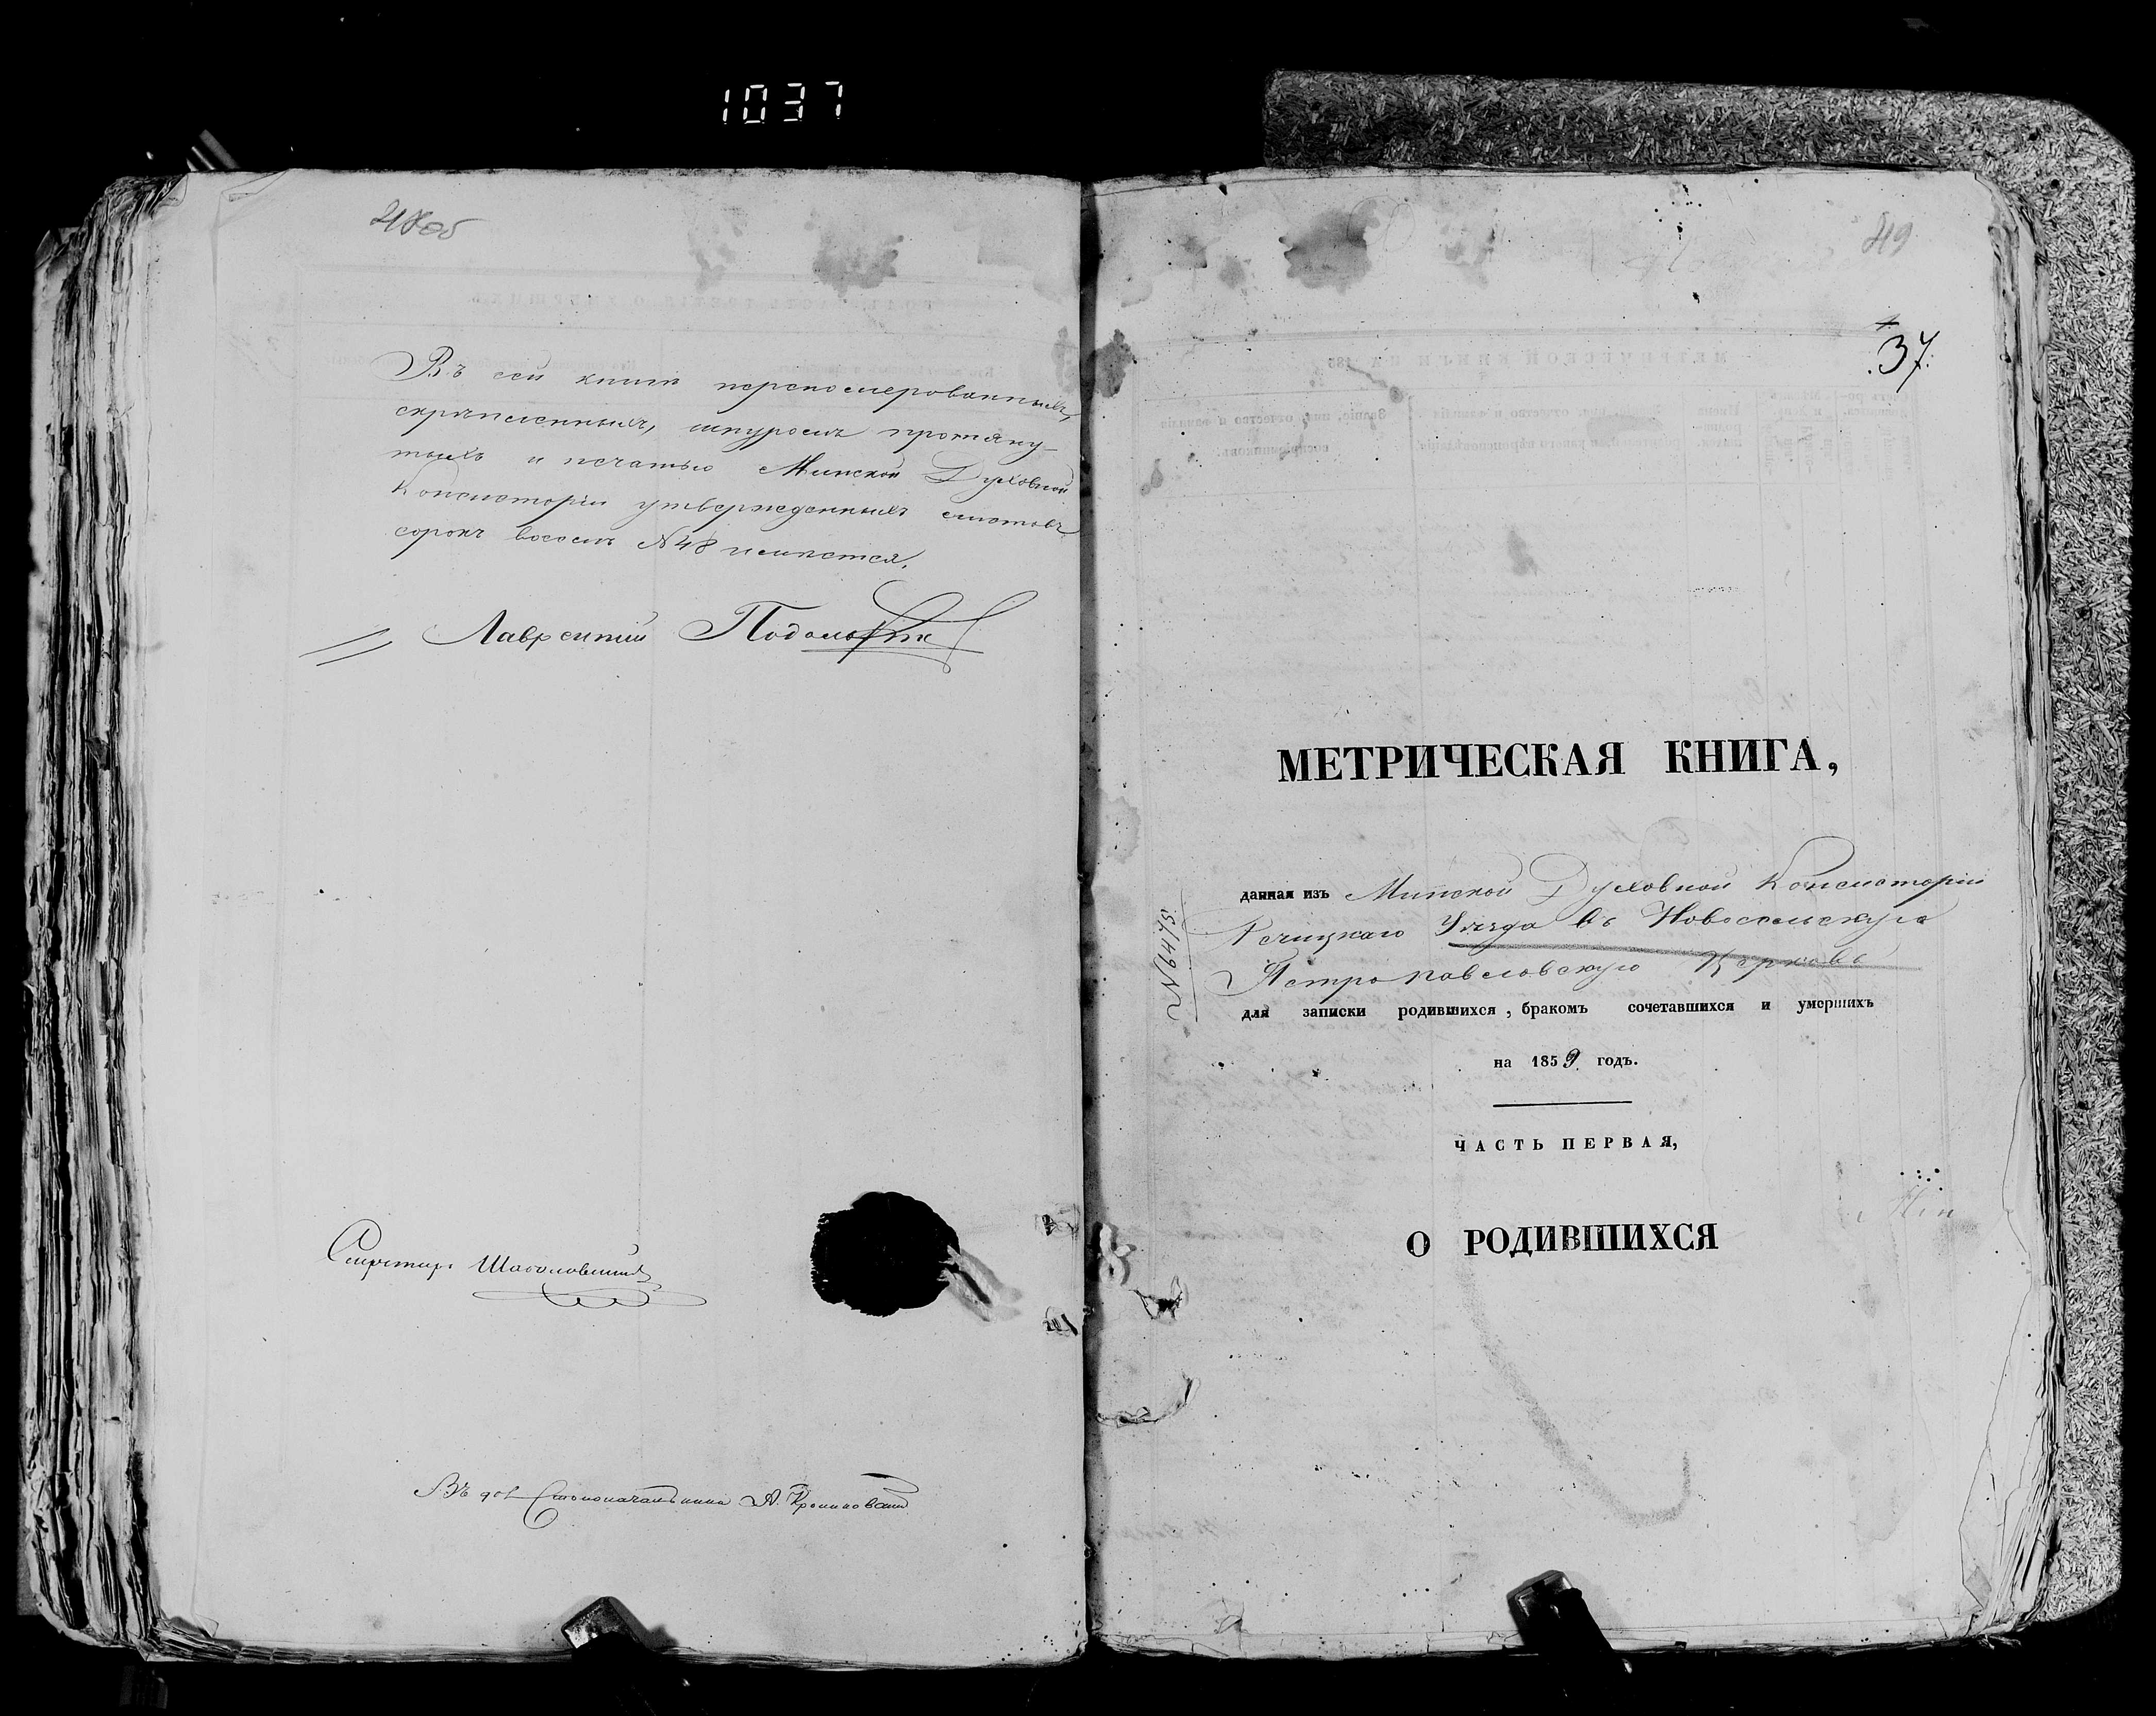 1037
48об
Въ сей книгѣ перенумерованныхъ,
скрѣпленныхъ, шнуромъ протяну-
тыхъ и печатью Минской Духовной
Консисторіи утвержденныхъ листовъ
сорокъ восемь N48 имѣется.
Лаврентій
Секретарь
Въ дол. Столоначальника А.
49
37.
МЕТРИЧЕСКАЯ КНИГА,
данная изъ Минской Духовной Консисторіи
Речицкаго Уѣзда въ Новосельскую
Петропавловскую Церковь
для записки родившихся, бракомъ сочетавшихся и умершихъ
на 1859 годъ.
ЧАСТЬ ПЕРВАЯ,
О РОДИВШИХСЯ